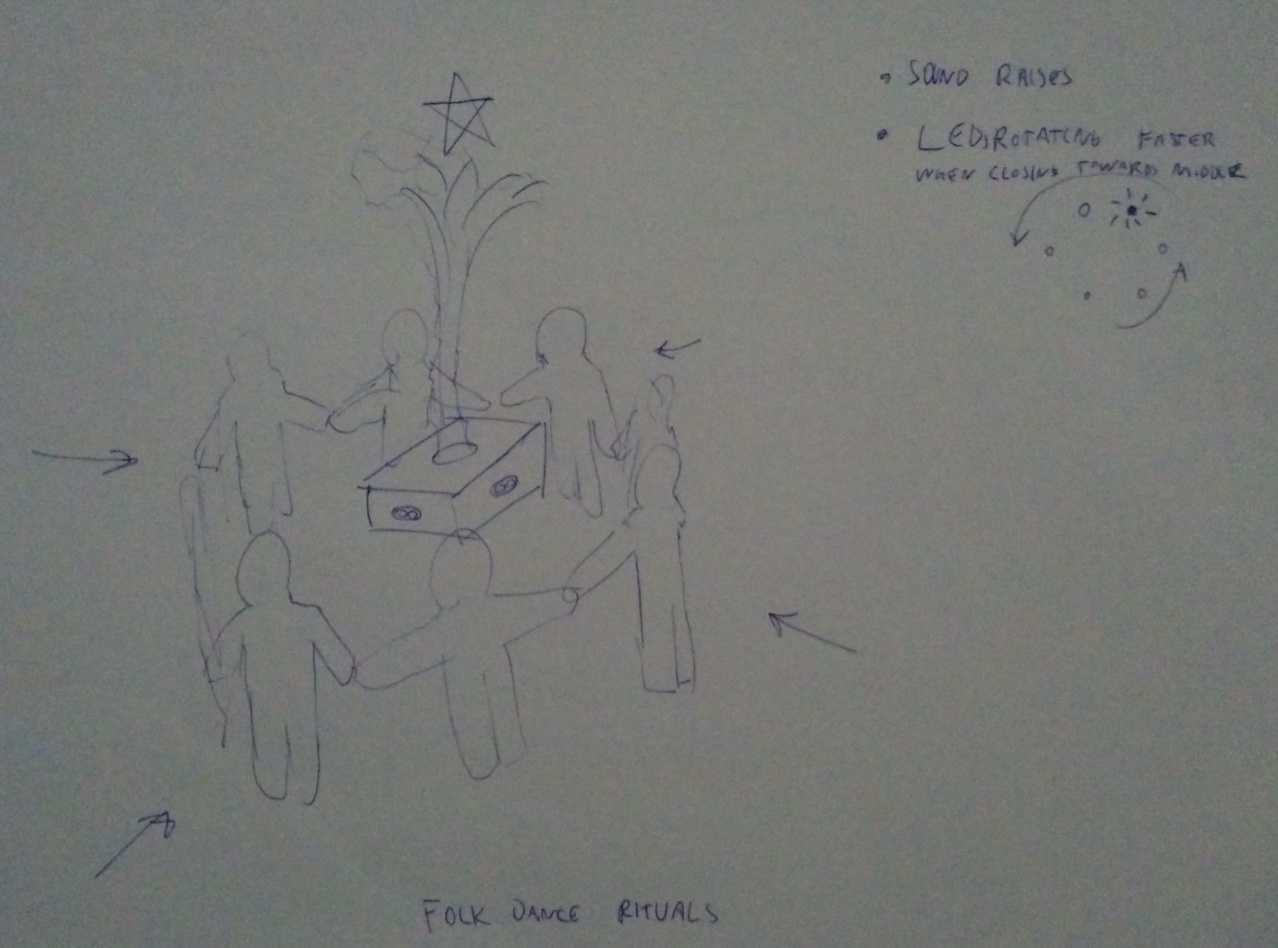 SOUND RAISES
LEDS ROTATING FASTER
WHEN CLOSING TOWARDS MIDDLE
FOLK DANCE RITUALS